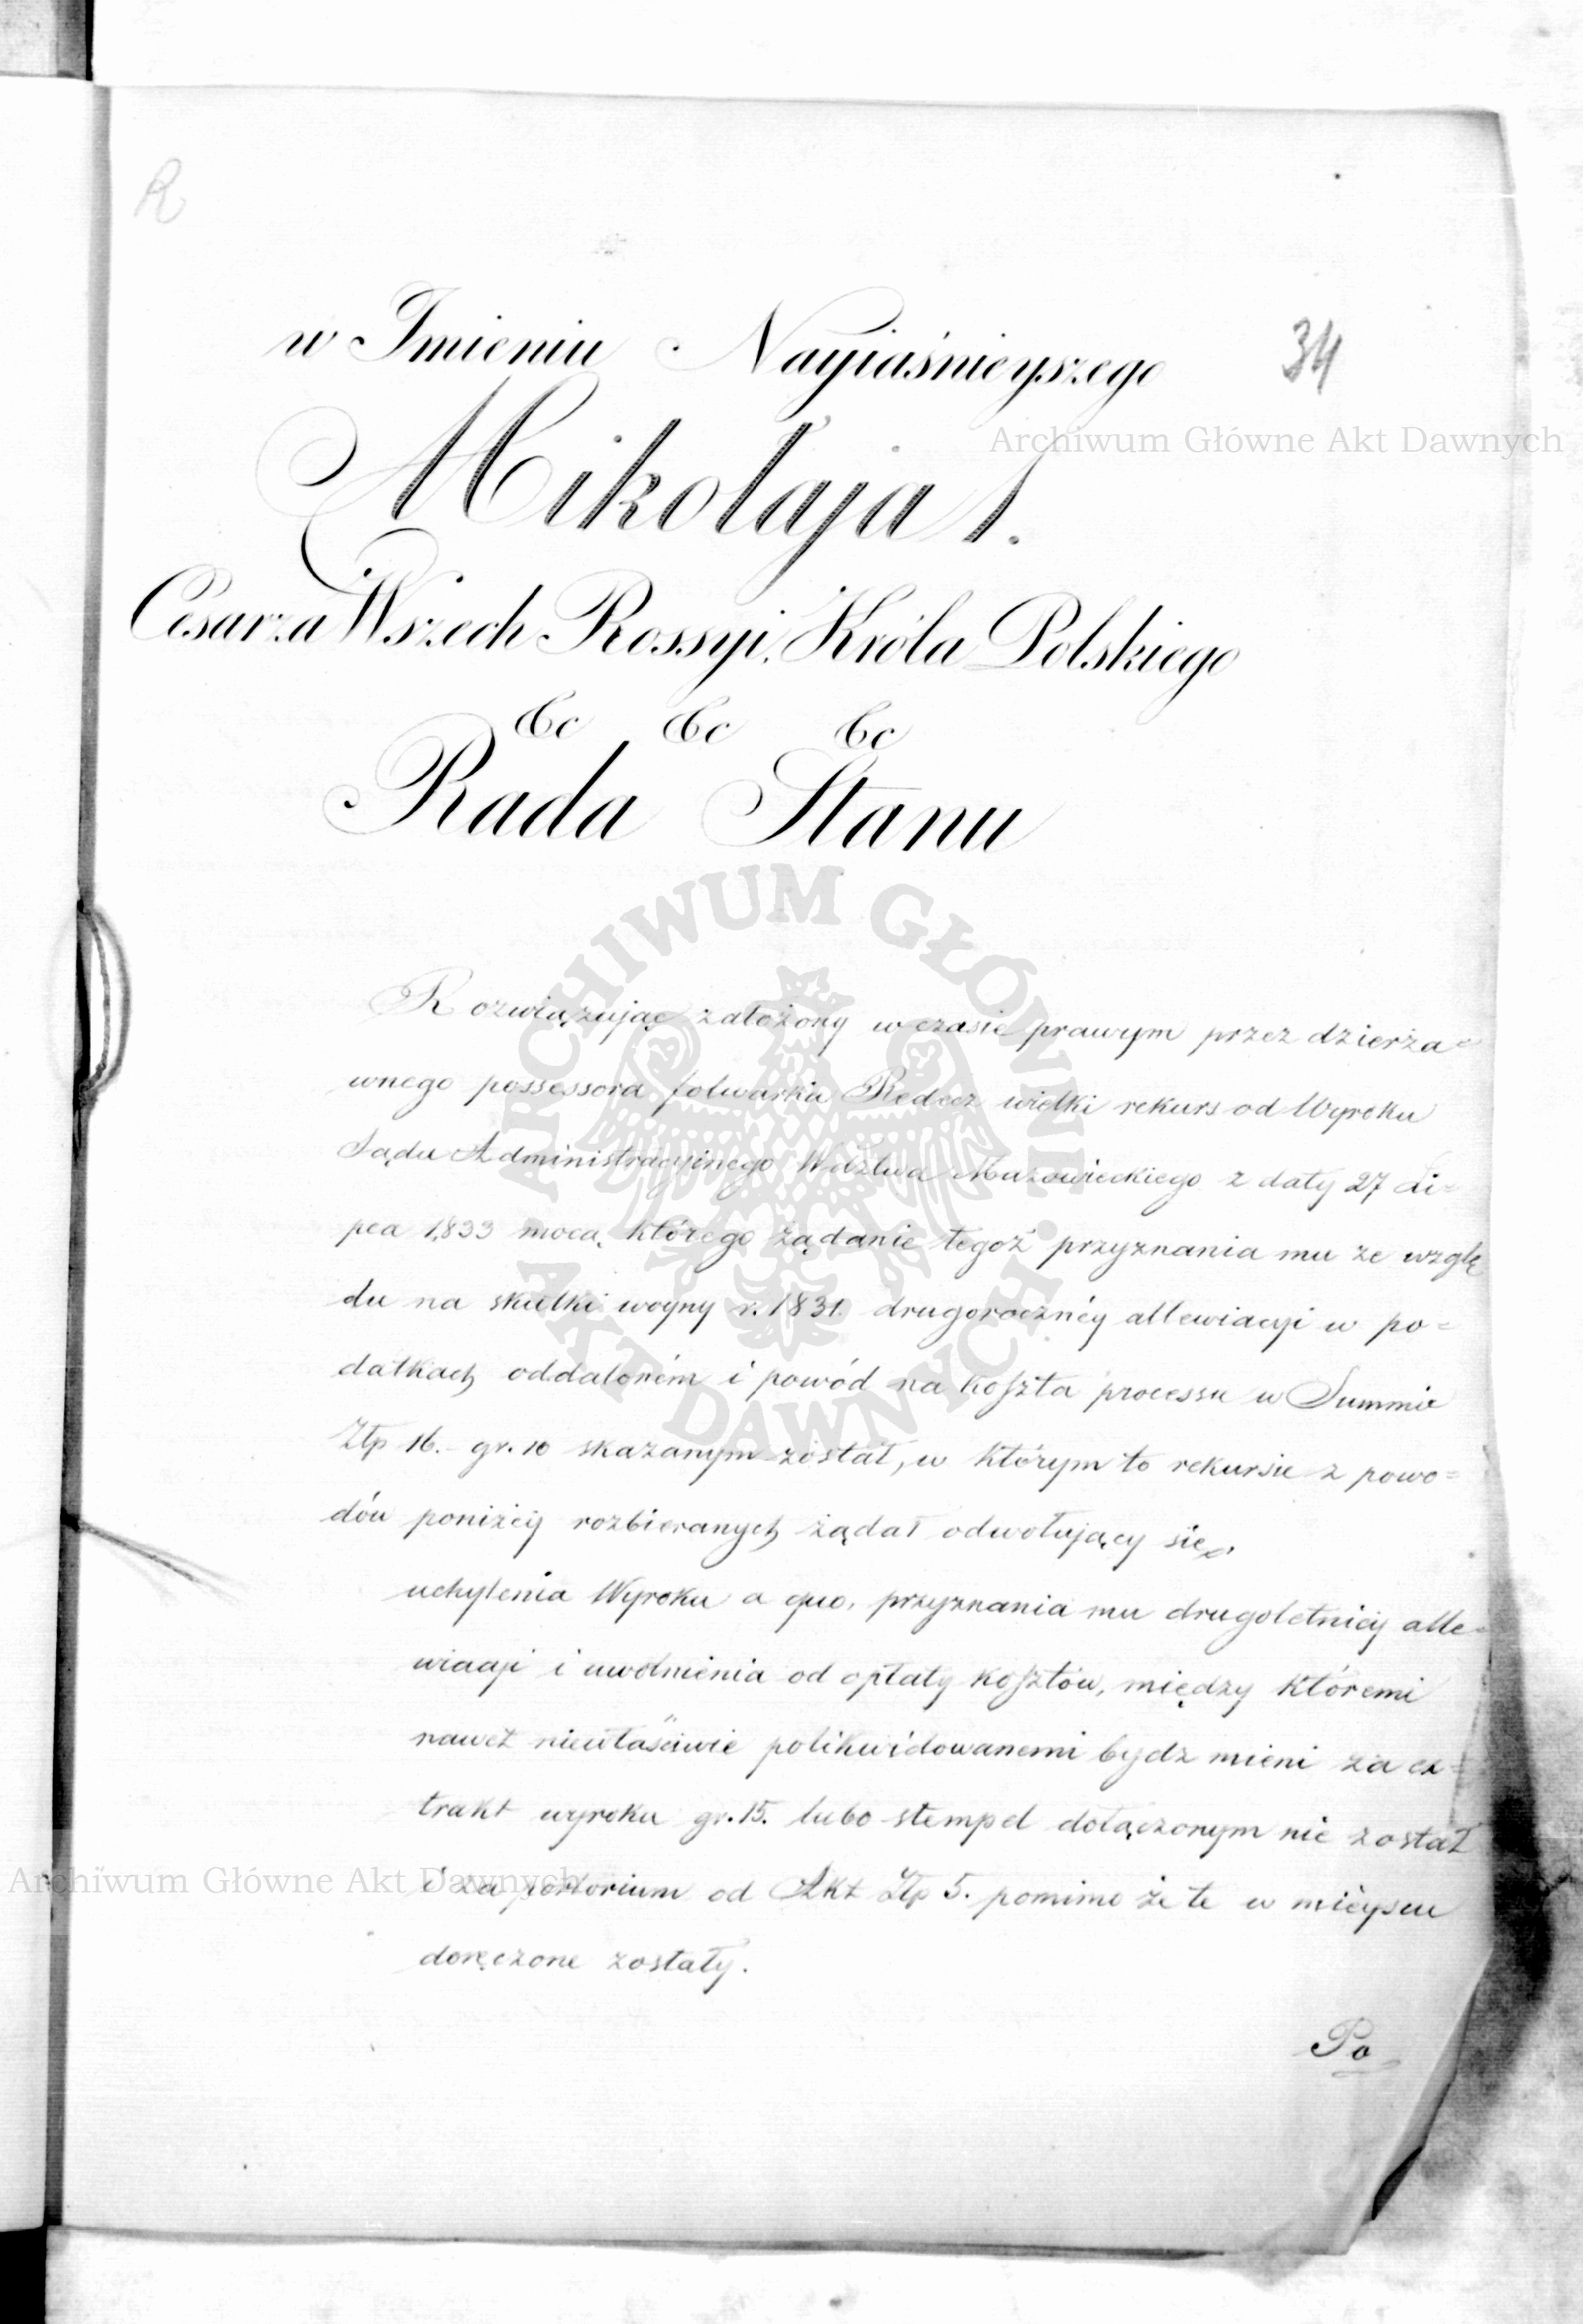 R
w Imieniu Nayiaśnieyszego
34
Archiwum Główne Akt Dawnych
Mikołaja I.
Cesarza Wszech Rossyi, Króla Polskiego
&c &c &c
Rada Stanu
ARCHIWUM GŁÓWNE
AKT DAWNYCH
Rozwiązując założony w czasie prawym przez dzierża=
wnego possessora folwarku Redecz wielki rekurs od Wyroku
Sądu Administracyinego Wdztwa Mazowieckiego z daty 27 Li=
pca 1833 mocą którego żądanie tegoż przyznania mu ze wzglę
du na skutki woyny r. 1831. drugorocznéy allewiacyi w po=
datkach oddaloném i powód na koszta processu w Summie
Złp 16. gr. 10 skazanym został, w którym to rekursie z powo=
dów poniżéy rozbieranych żądał odwołujący się,
uchylenia Wyroku a quo, przyznania mu drugoletniéy alle=
wiacyi i uwolnienia od opłaty kosztów, między któremi
nawet niewłaściwie polikwidowanemi bydz mieni za ex=
trakt wyroku gr. 15. lubo stempel dołączonym nie został
i za portorium od Akt Złp 5. pomimo że te w mieyscu
doręczone zostały.
Archiwum Główne Akt Dawnych
Po